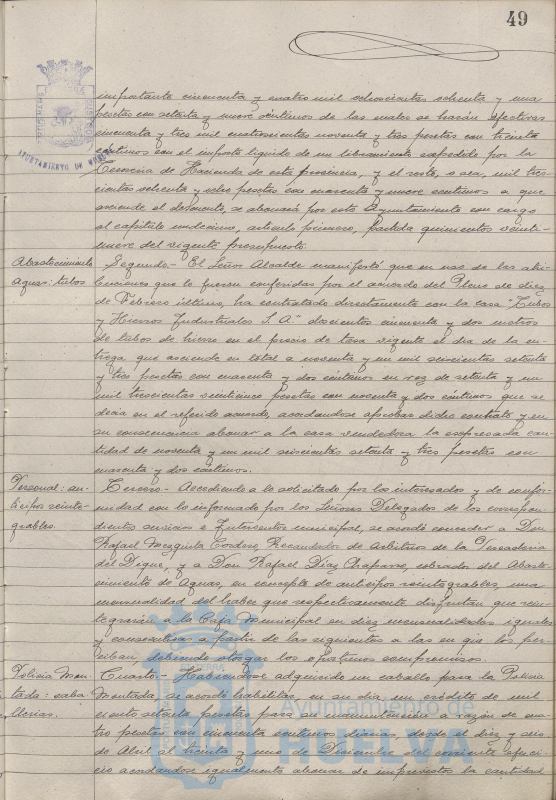 49
importante cincuenta y cuatro mil ochocientas ochenta y una
pesetas con setenta y nueve céntimos de las cuales se harán efectivas
cincuenta y tres mil cuatrocientas noventa y tres pesetas con treinta
céntimos con el importe líquido de un libramiento expedido por la
Tesorería de Hacienda de esta provincia, y el resto, o sea, mil tres-
cientas ochenta y ocho pesetas con cuarenta y nueve céntimos a que
asciende el descuento, se abonará por este Ayuntamiento con cargo
al capítulo undécimo, artículo primero, partida quinientos veinti-
nueve del vigente presupuesto.
Abastecimiento
aguas: tubos
Segundo.- El Señor Alcalde manifestó que en uso de las atri-
buciones que le fueron conferidas por el acuerdo del Pleno de diez
de Febrero último, ha contratado directamente con la casa "Tubos
y Hierros Industriales S.A." doscientos cincuenta y dos metros
de tubos de hierro en el precio de tasa vigente el dia de la en-
trega que asciende en total a noventa y un mil seiscientas setenta
y tres pesetas con cuarenta y dos céntimos en vez de setenta y un
mil trescientas veinticinco pesetas con noventa y dos céntimos que se
decia en el referido acuerdo, acordandose aprobar dicho contrato y en
su consecuencia abonar a la casa vendedora la expresada can-
tidad de noventa y un mil seiscientas setenta y tres pesetas con
cuarenta y dos céntimos.
Personal: an-
ticipos reinte-
grables.
Tercero.- Accediendo a lo solicitado por los interesados y de confor-
midad con lo informado por los Señores Delegados de los correspon-
dientes servicios e Interventor municipal, se acordó conceder a Don
Rafael Mezquita Cordero, Recaudador de Arbitrios de la Pescaderia
del Dique, y a Don Rafael Díaz Chaparro, cobrador del Abaste-
cimiento de Aguas, en concepto de anticipos reintegrables, una
mensualidad del haber que respectivamente disfrutan que rein-
tegrarán a la Caja Municipal en diez mensualidades iguales
y consecutivas a partir de las siguientes a las en que los per-
ciban, debiendo otorgar los oportunos compromisos.
Policia Mon-
tada: caba-
llerias.
Cuarto.- Habiendose adquirido un caballo para la Policia
Montada, se acordó habilitar, en su dia un crédito de mil
ciento setenta pesetas para su manutención a razón de cua-
tro pesetas con cincuenta céntimos diarias, desde el diez y seis
de Abril al treinta y uno de Diciembre del corriente ejerci-
cio acordandose igualmente abonar de imprevistos la cantidad
AYUNTAMIENTO DE HUELVA
Ayuntamiento de
HUELVA